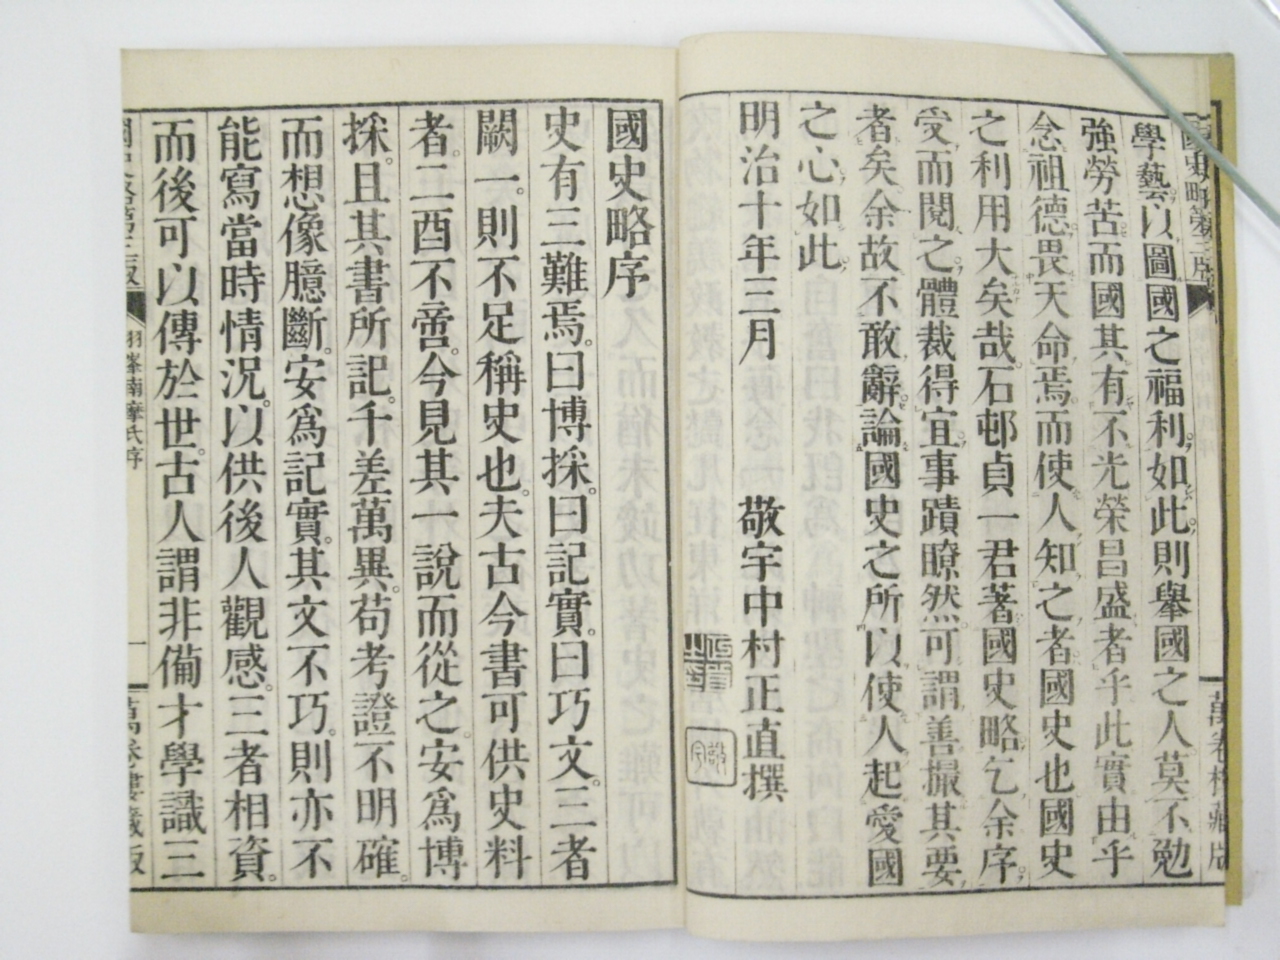 國史略第三版
萬卷樓藏版
學藝以圖國之福利如此則舉國之人莫不勉
強勞苦而國其有不光榮昌盛者乎此實由乎
念祖德畏天命焉而使人知之者國史也國史
之利用大矣哉石邨貞一君著國史略乞余序
受而閱之體裁得宜事蹟瞭然可謂善撮其要
者矣余故不敢辭論國史之所以使人起愛國
之心如此
明治十年三月　敬宇中村正直撰
國史略序
史有三難焉。曰博採。曰記實。曰巧文。三者
闕一。則不足稱史也。夫古今書可供史料
者。二酉不啻。今見其一說而從之。安爲博
採。且其書所記。千差萬異。苟考證不明確。
而想像臆斷。安爲記實。其文不巧。則亦不
能寫當時情況。以供後人觀感。三者相資。
而後可以傳於世。古人謂非備才學識三
國史略第三版
羽峯南摩氏序
一
萬卷樓藏版